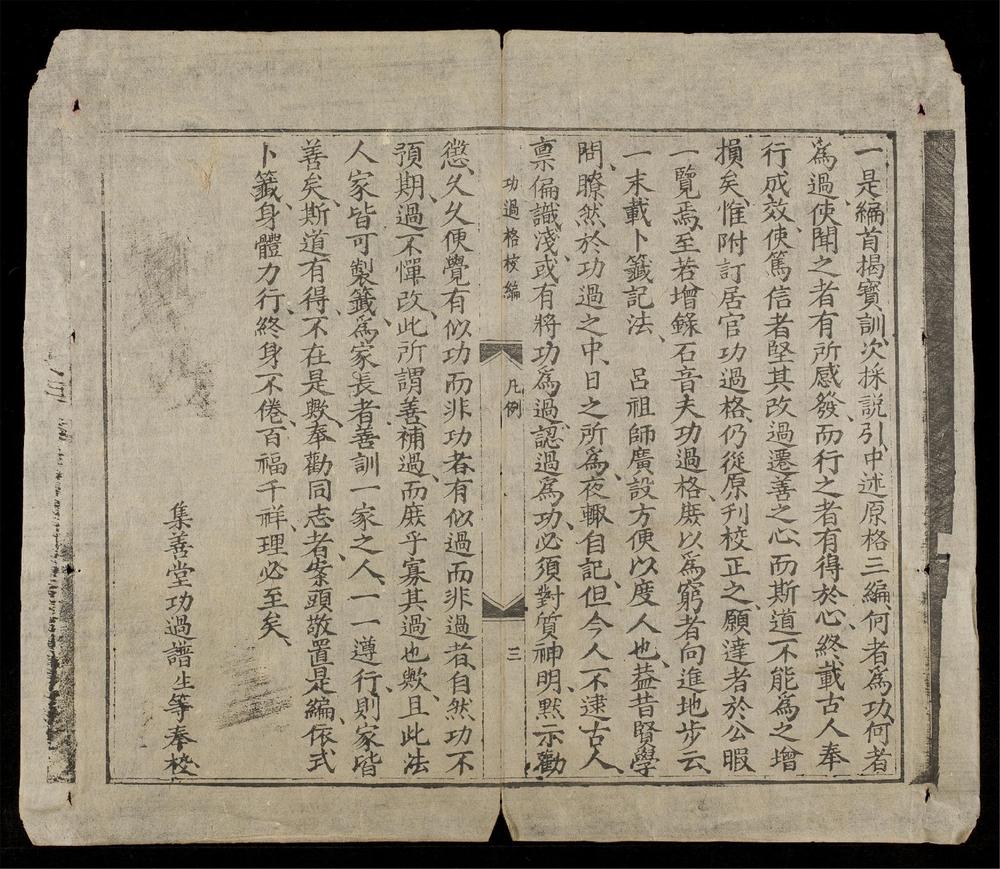 一是編首揭寶訓、次採説引、中述原格三編、何者為功何者
為過、使聞之者有所感發、而行之者有得於心、終載古人奉
行成效、使篤信者堅其改過遷善之心、而斯道不能為之增
損矣、惟附訂居官功過格、仍從原刊校正之、願達者於公暇
一覽焉、至若增録石音夫功過格、庶以為窮者向進地步云、
一末載卜籤記法、　呂祖師廣設方便以度人也、葢昔賢學
問、瞭然於功過之中、日之所為、夜輙自記、但今人不逮古人、
禀偏識淺、或有將功為過、認過為功、必須對質神明、默示勸
功過格校編　凡例　三
懲、久久便覺有似功而非功者、有似過而非過者、自然功不
預期、過不憚改、此所謂善補過、而庶乎寡其過也歟、且此法
人家皆可製籤、為家長者善訓一家之人、一一遵行、則家皆
善矣、斯道有得、不在是歟、奉勸同志者、案頭敬置是編、依式
卜籤、身體力行、終身不倦、百福千祥、理必至矣、
集善堂功過譜生等奉校